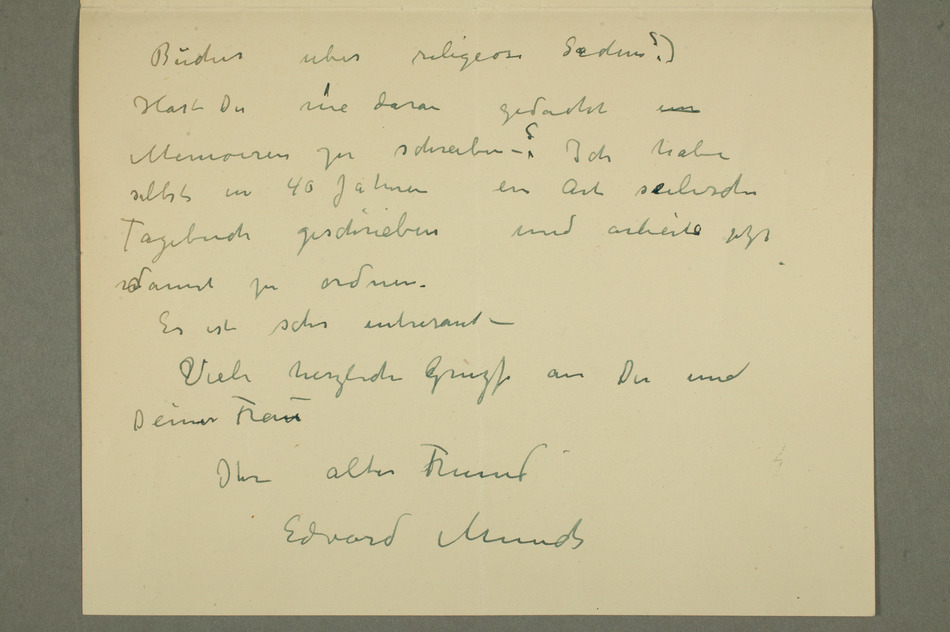 Bücher über religeose Seden?)
Hast Du nie daran gedacht
Memoiren zu schreiben–? Ich habe
selbst in 40 Jahren en Art seelische
Tagebuch geschrieben und arbeite jetzt
damit zu ordnen.
Es ist sehr interesant –
Viele herzliche Grüsse an Du und
Deiner Frau
Ihr alter Freund
Edvard Munch